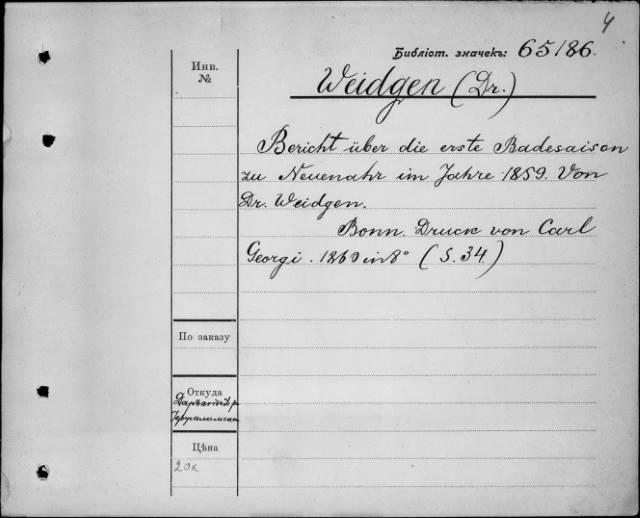 4
Библіот. значекъ: 65186.
Инв.
№
Weidgen (Dr.)
Bericht über die erste Badesaison
zu Neuenahr im Jahre 1859. Von
Dr. Weidgen.
Bonn. Druck von Carl
Georgi. 1860 in 8° (S. 34)
По заказу
Откуда
Цѣна
20к